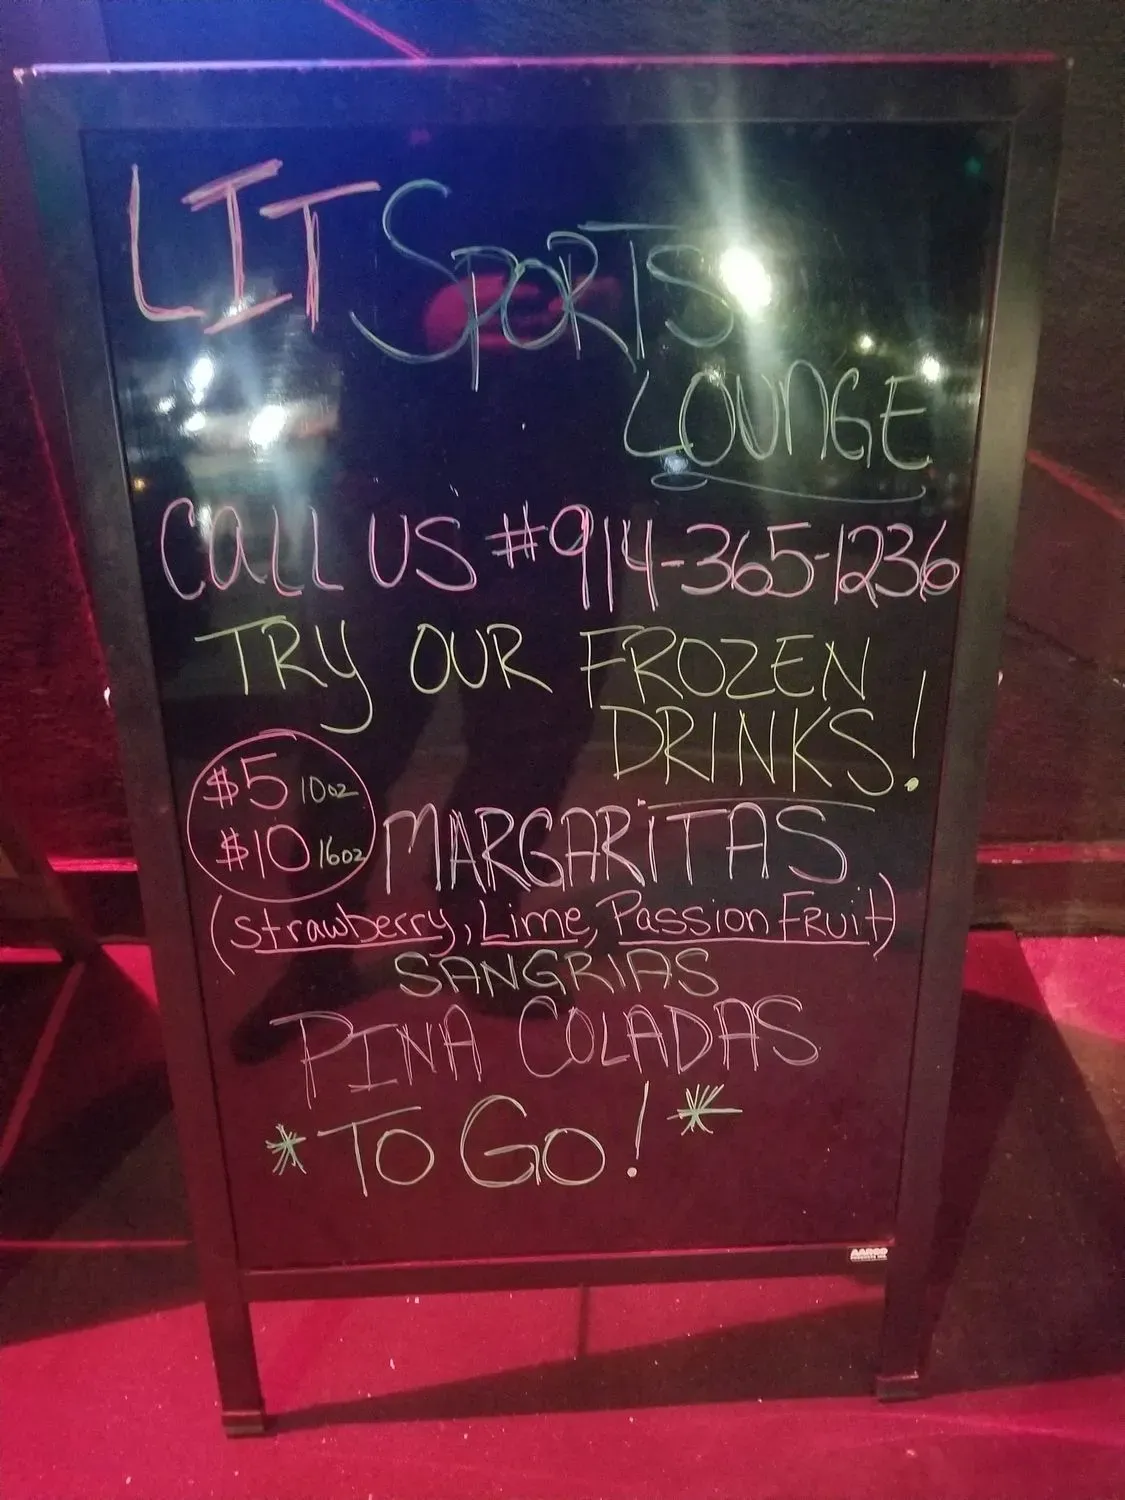 LIT SPORTS
LOUNGE
CALL US #914-365-1236
TRY OUR FROZEN
DRINKS!
$5 10oz
$10 16oz
MARGARITAS
(strawberry, Lime, Passion Fruit)
SANGRIAS
PINA COLADAS
*TO GO!*
AARCO